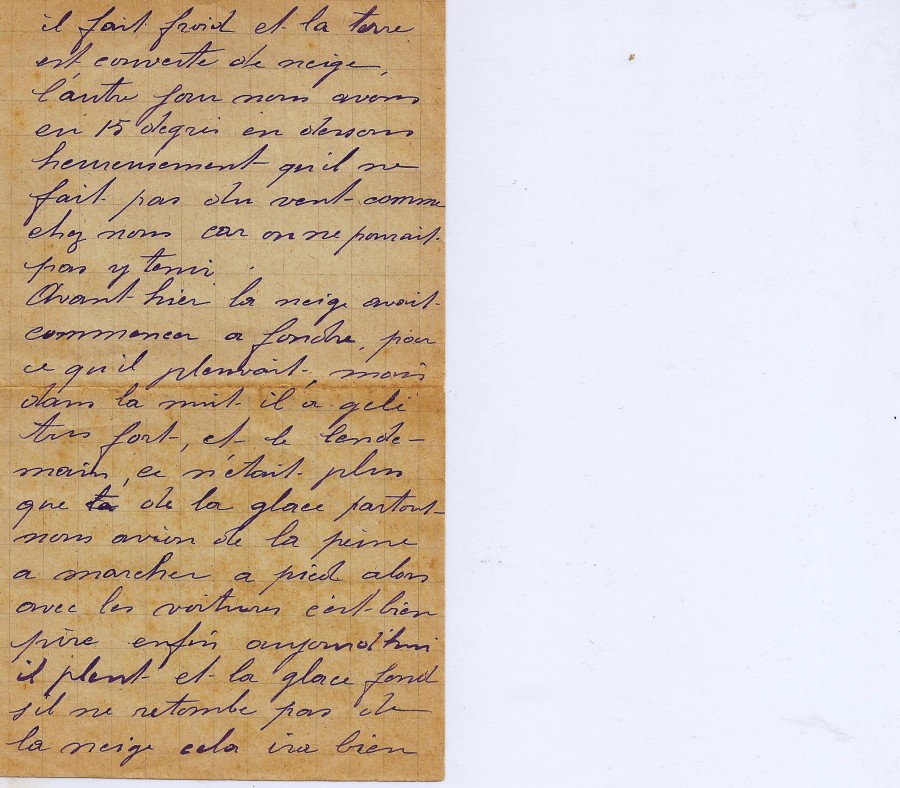 il fait froid et la terre
est couverte de neige,
l'autre jour nous avons
eu 15 degris en dessous
heureusement qu'il ne
fait pas du vent comme
chez nous car on ne pourait
pas y tenir.
Avant hier la neige avait
commencer a fondre, par
ce qu'il pleuvait, mais
dans la nuit il a gelé
tres fort, et le lende-
main, ce n'était plus
que de la glace partout
nous avion de la peine
a marcher a pied alors
avec les voitures c'est bien
pire enfin aujourd'hui
il pleut et la glace fond
s'il ne retombe pas de
la neige cela ira bien